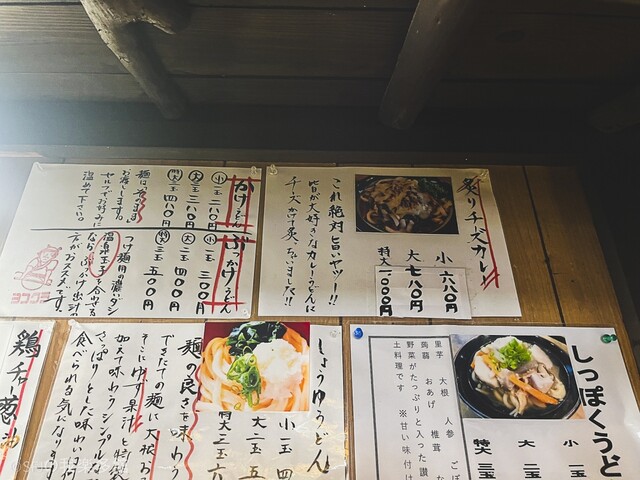 かけうどん
小 一玉 二〇〇円
大 二玉 三〇〇円
特大 三玉 四〇〇円
お渡しします。
セルフでお好みに
温めて下さい。
ぶっかけうどん
小 一玉 三〇〇円
大 二玉 四〇〇円
特大 三玉 五〇〇円
つけ麺用の濃いダシ
温泉玉子を合わせる
なら、ぶっかけ出汁の
方がおススメです。
炙りチーズカレー
小 六八〇円
大 七八〇円
特大 一〇〇〇円
これ絶対旨いヤツー!!
皆が大好きなカレーうどんに
チーズかけて炙っちゃいました!!
しょうゆうどん
小 一玉 四
大 二玉 五
特大 三玉 六
麺の良さを味わう
できたての麺に大根お
そこにゆず果汁と特製
加えて味わうシンプルか
さっぱりとした味わい
食べられる気になります
しっぽくうど
小 一玉
大 二玉
特大 三玉
里芋 大根 人参 ごぼ
蒟蒻 おあげ 椎茸 な
野菜がたっぷりと入った讃
土料理です ※甘い味付け
鶏チャー葱